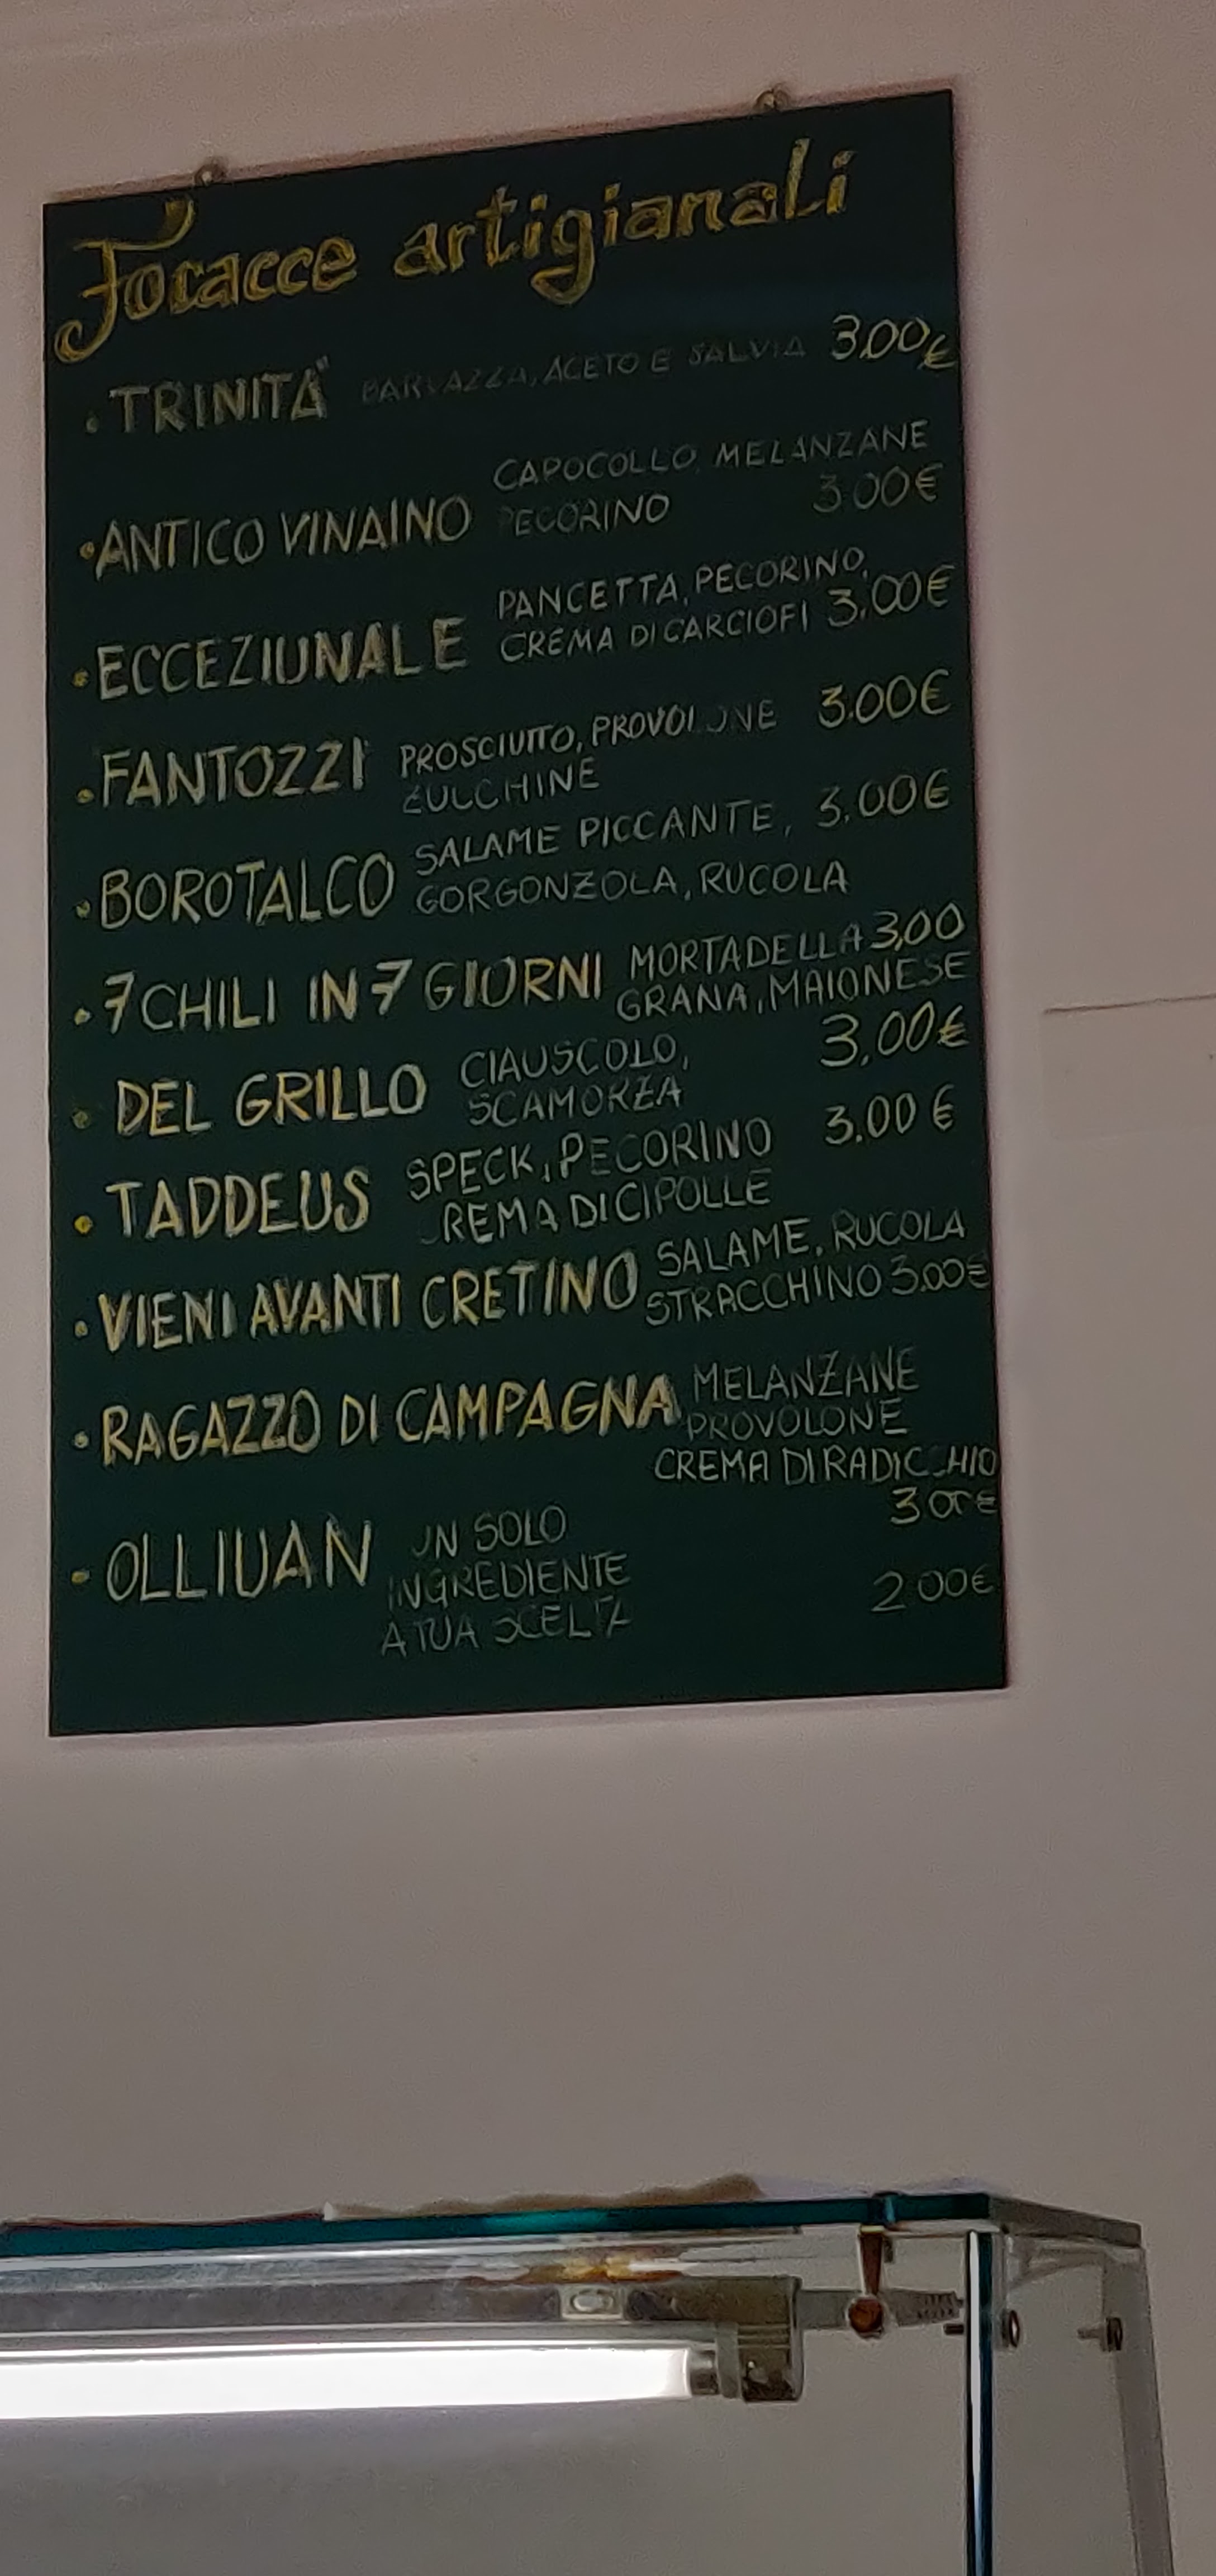 Focacce artigianali
• TRINITÀ BARVAZZA, ACETO E SALVIA 3.00€
CAPOCOLLO, MELANZANE
• ANTICO VINAINO PECORINO 3.00€
PANCETTA, PECORINO,
• ECCEZIUNALE CREMA DI CARCIOFI 3.00€
• FANTOZZI PROSCIUTTO, PROVOLONE 3.00€
ZUCCHINE
SALAME PICCANTE, 3.00€
• BOROTALCO GORGONZOLA, RUCOLA
• 7 CHILI IN 7 GIORNI MORTADELLA 3,00
GRANA, MAIONESE
• DEL GRILLO CIAUSCOLO, 3,00€
SCAMORZA
• TADDEUS SPECK, PECORINO 3.00 €
CREMA DI CIPOLLE
• VIENI AVANTI CRETINO SALAME, RUCOLA
STRACCHINO 3.00€
• RAGAZZO DI CAMPAGNA MELANZANE
PROVOLONE
CREMA DI RADICCHIO
3 00€
• OLLIUAN UN SOLO
INGREDIENTE 2.00€
A TUA SCELTA